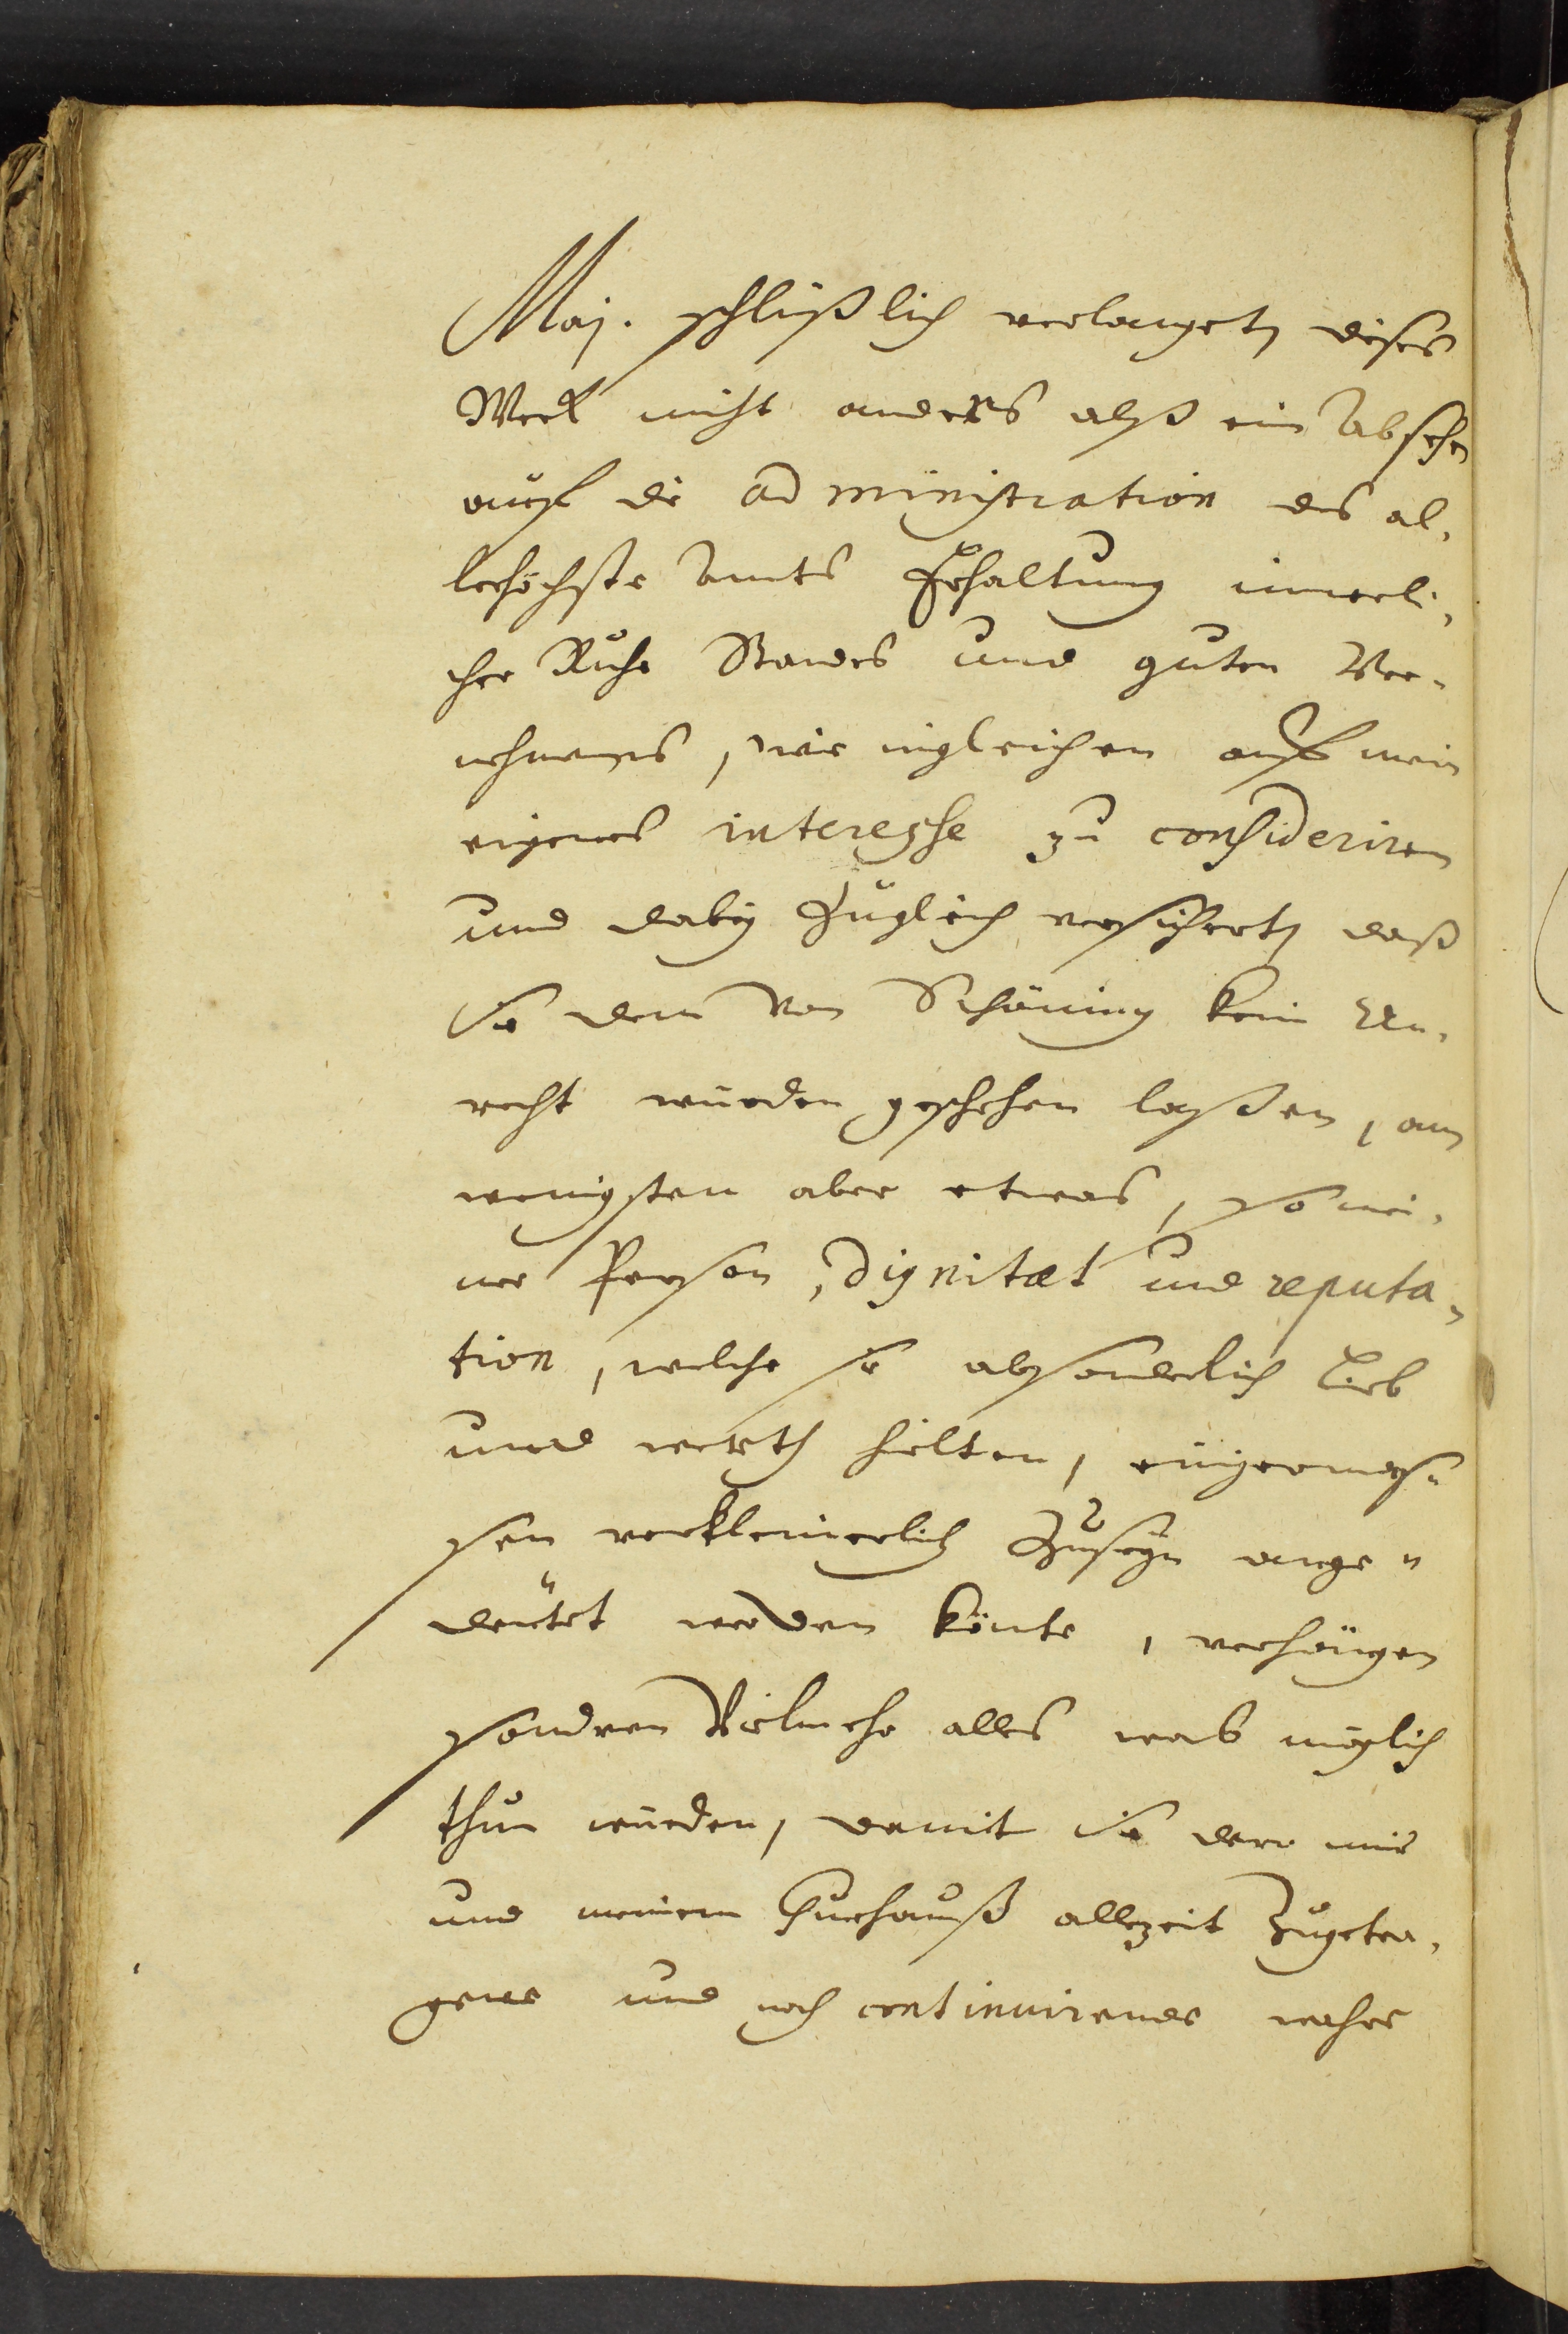 Maj. schlüßlich verlanget, dieses
Werk nicht anders alß ein Absehen
auff die administration des al,
lerhöchste Amts Erhaltung innerli,
cher Ruhe Standes und guten Ver-
nehmens, wie ingleichen auff mein
eigenes interesse zu consideriren
und dabey Zugleich versichert, daß
sie dem von Schöning kein Un,
recht würden geschehen laßen, am
wenigsten aber etwas, so mei,
ner Person, Dignitæt und reputa,
tion, welche sie absonderlich Lieb
und werth hielten, einigermas-
sen verkleinerlich Zuseyn ange"
deütet werden könte, verhängen
sondern Vielmehr alles was müglich
thun würden, damit sie dero mir
und meinem Churhauß allezeit Zugetra,
gene und noch continuirende wahre